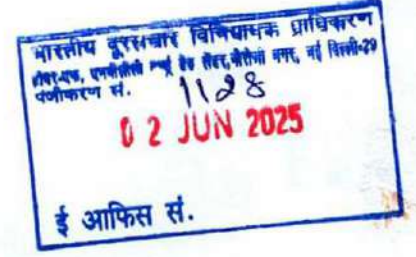 भारतीय दूरसंचार विनियामक प्राधिकरण
टावर-एफ, एनबीसीसी वर्ल्ड ट्रेड सेंटर, नौरोजी नगर, नई दिल्ली-29
पंजीकरण सं. 1128
02 JUN 2025
ई आफिस सं.